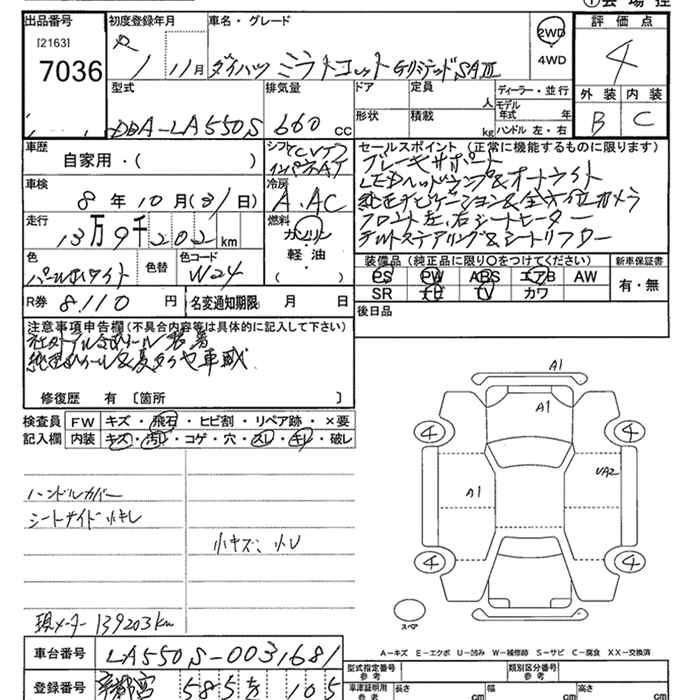 ①会場控
出品番号 初度登録年月 車名・グレード 評価点
[2163]
7036 1/11月 ダイハツ ミラトコット GリミテッドSAⅢ 2WD 4
4WD
型式 排気量 ドア 定員 人 ディーラー・並行 外装 内装
DBA-LA550S 660 cc 形状 積載 kg モデル年式 年 B C
ハンドル 左・右
車歴 自家用・( ) シフト CVT インパネAT セールスポイント (正常に機能するものに限ります)
ブレーキサポート
車検 8年10月(31日) 冷房 A.AC LEDヘッドランプ&オートライト
純正ナビゲーション&全方位カメラ
走行 13万9千202km 燃料 ガソリン フロント左、右シートヒーター
軽油・ チルトステアリング&シートリフター
( )
色 パールホワイト 色替 色コード W24 装備品 (純正品に限り○をつけてください) 新車保証書
PS PW ABS エアB AW 有・無
R券 8.110 円 名変通知期限 月 日 SR ナビ TV カワ
後日品
注意事項申告欄(不具合内容等は具体的に記入して下さい)
社外アルミホイール装着
純正ホイール&夏タイヤ車載
修復歴 有 〔箇所 〕
検査員 FW キズ・飛石・ヒビ割・リペア跡・×要
記入欄 内装 キズ・汚れ・コゲ・穴・スレ・キレ・破レ
A1
A1
4 4
UA2
A1
ハンドルカバー
シートサイド小キレ
小キズ、小U
4 4
現メーター139203km
スペア
A-キズ E-エクボ U-凹み W-補修跡 S-サビ C-腐食 XX-交換済
車台番号 LA550S-0031681
型式指定番号 参考 類別区分番号 参考
登録番号 宇都宮 585 を 105
車庫証明用 参考 長さ cm 幅 cm 高さ cm